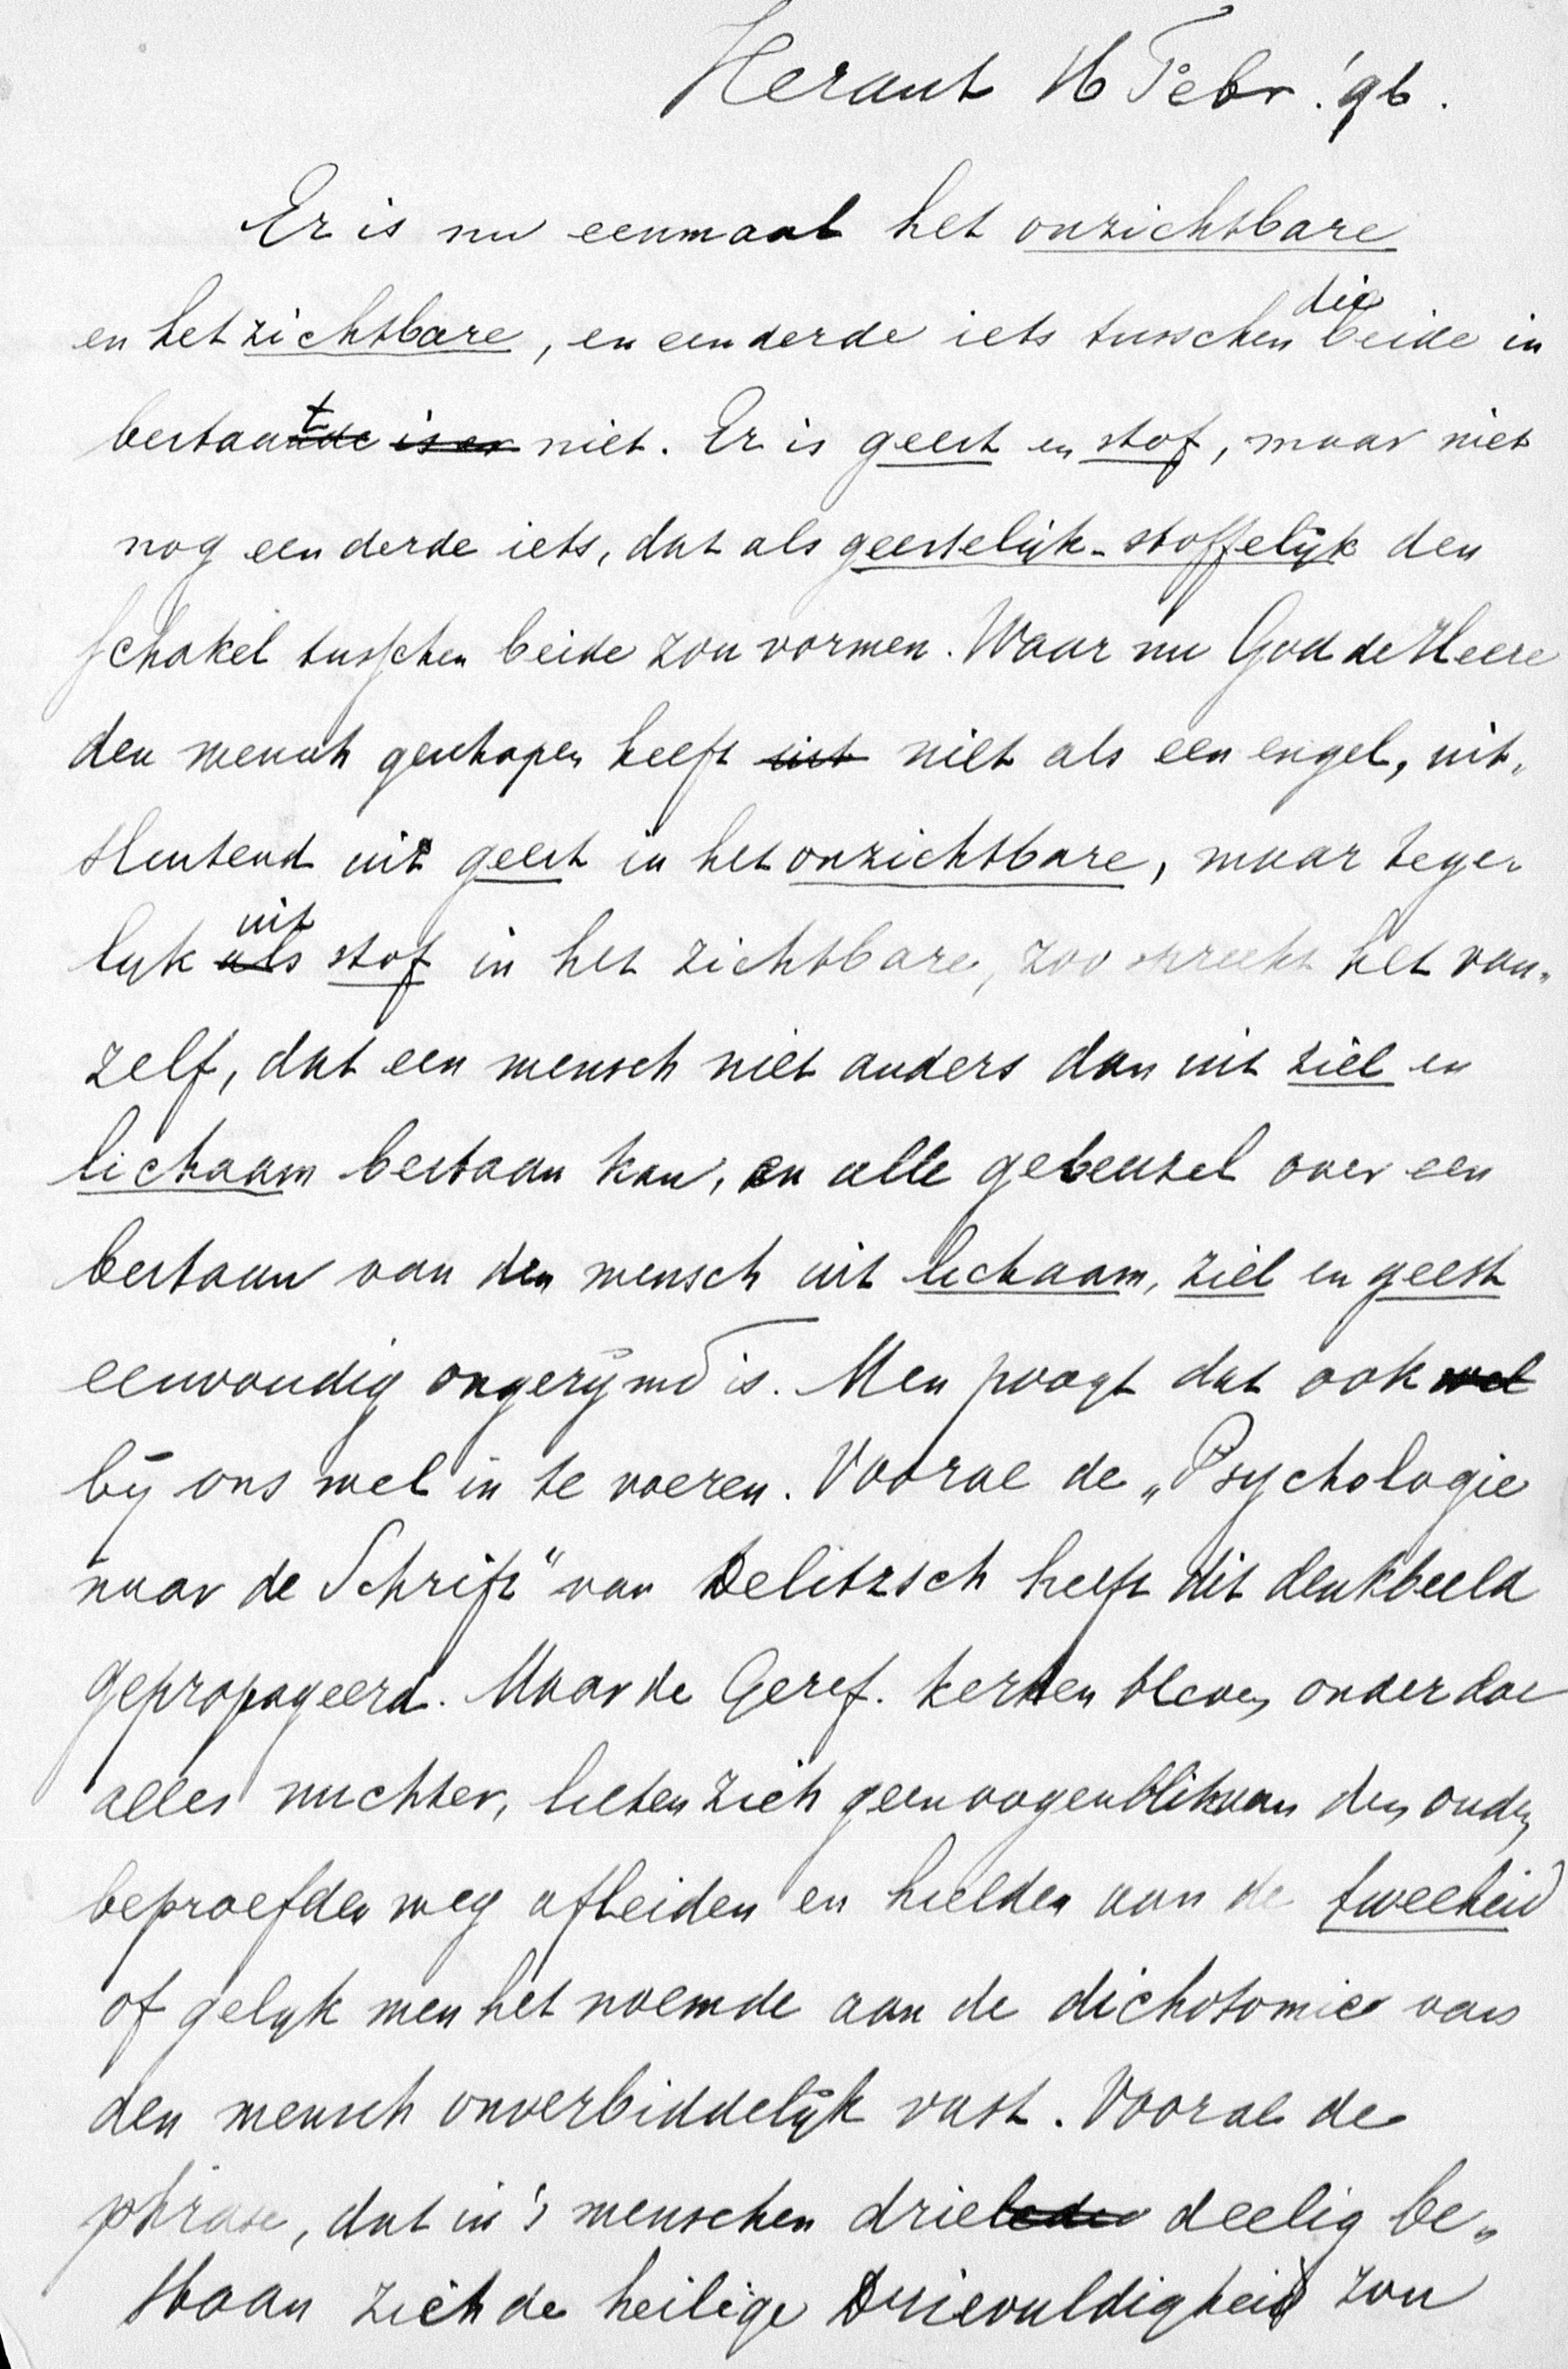 Heraut 16 Febr. '96.
Er is nu eenmaal het onzichtbare
en het zichtbare, en een derde iets tusschen die beide in
bestaat niet. Er is geest en stof, maar niet
nog een derde iets, dat als geestelijk-stoffelijk den
schakel tusschen beide zou vormen. Waar nu God de Heere
den mensch geschapen heeft niet als een engel, uit-
sluitend uit geest in het onzichtbare, maar tege-
lijk uit stof in het zichtbare, zoo spreekt het van-
zelf, dat een mensch niet anders dan uit ziel en
lichaam bestaan kan, en alle gebeuzel over een
bestaan van den mensch uit lichaam, ziel en geest
eenvoudig ongerijmd is. Men poogt dat ook wel
bij ons wel in te voeren. Vooral de „Psychologie
naar de Schrift" van Delitzsch heeft dit denkbeeld
gepropageerd. Maar de Geref. kerken bleven onder dat
alles nuchter, lieten zich geen oogenblik van den ouden
beproefden weg afleiden en hielden aan de tweeheid
of gelijk men het noemde aan de dichotomie van
den mensch onverbiddelijk vast. Vooral de
phrase, dat in 's menschen drie deelig be-
staan zich de heilige Drievuldigheid zou